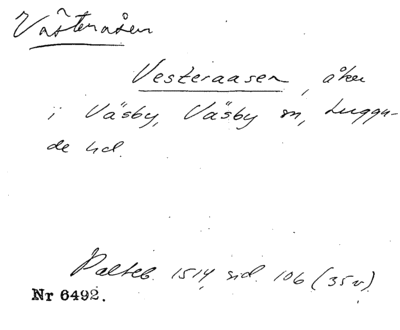 Västeråsen
Vesteraasen, åker
i Väsby, Väsby sn, Luggu-
de hd.
Palteb. 1514, sid. 106 (35v)
Nr 6492.